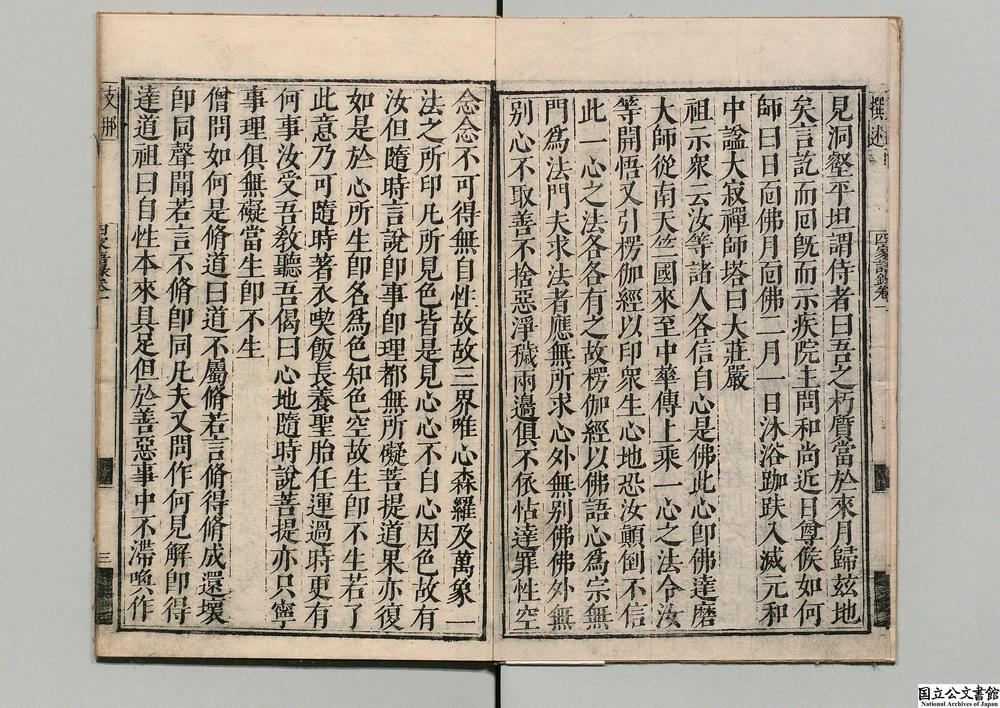 見洞壑平坦謂侍者曰吾之朽質當於來月歸玆地
矣言訖而囘旣而示疾院主問和尚近日尊候如何
師曰日面佛月面佛二月一日沐浴跏趺入滅元和
中諡大寂禪師塔曰大莊嚴
祖示衆云汝等諸人各信自心是佛此心卽佛達磨
大師從南天竺國來至中華傳上乘一心之法令汝
等開悟又引楞伽經以印衆生心地恐汝顚倒不信
此一心之法各各有之故楞伽經以佛語心爲宗無
門爲法門夫求法者應無所求心外無别佛佛外無
别心不取善不捨惡淨穢兩邊俱不依怙達罪性空
念念不可得無自性故故三界唯心森羅及萬象一
法之所印凡所見色皆是見心心不自心因色故有
汝但隨時言說卽事卽理都無所礙菩提道果亦復
如是於心所生卽名爲色知色空故生卽不生若了
此意乃可隨時著衣喫飯長養聖胎任運過時更有
何事汝受吾敎聽吾偈曰心地隨時說菩提亦只寧
事理俱無礙當生卽不生
僧問如何是脩道曰道不屬脩若言脩得脩成還壞
卽同聲聞若言不脩卽同凡夫又問作何見解卽得
達道祖曰自性本來具足但於善惡事中不滯喚作
撰述
四家語錄卷一
支那
四家語錄卷一
三
国立公文書館
National Archives of Japan